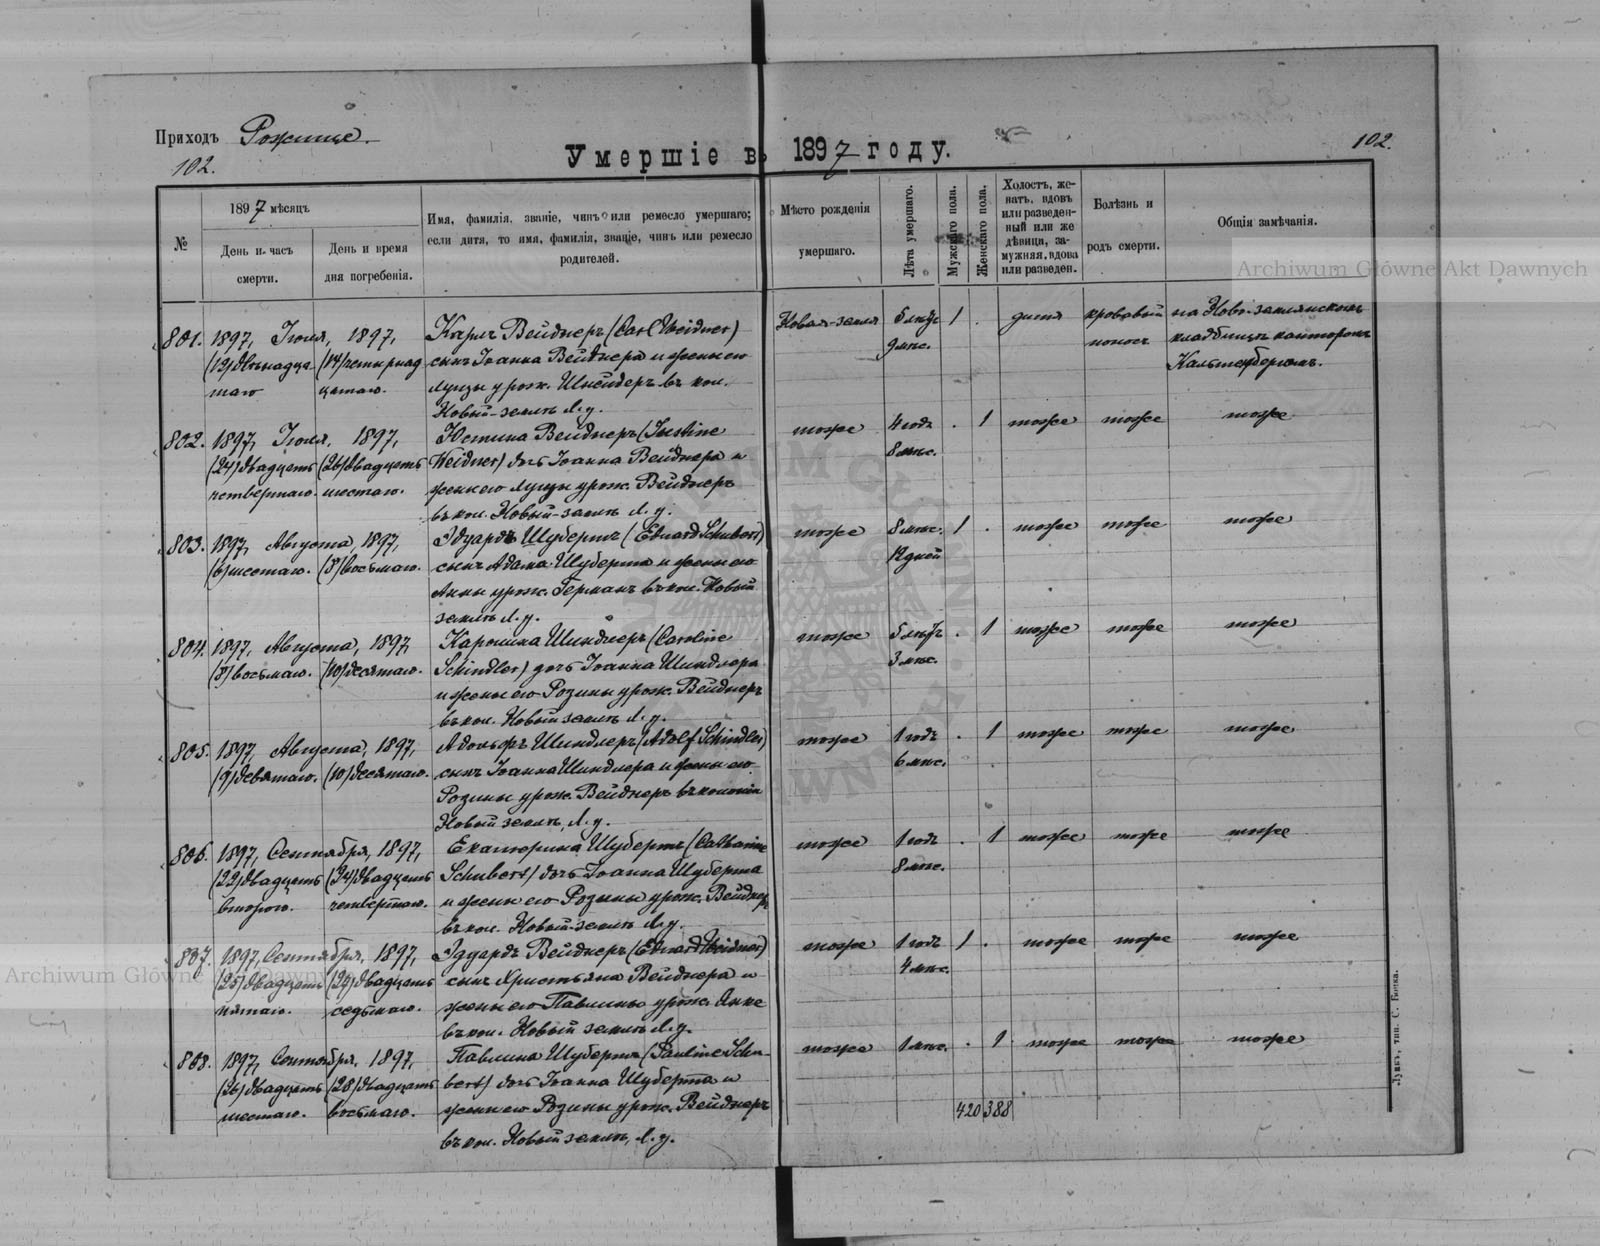 Приходъ Рожище.
102.
Умершіе въ 1897 году.
102.
№
1897 мѣсяцъ
День и часъ смерти.
День и время дня погребенія.
Имя, фамилія, званіе, чинъ или ремесло умершаго; если дитя, то имя, фамилія, званіе, чинъ или ремесло родителей.
Мѣсто рожденія умершаго.
Лѣта умершаго.
Мужскаго пола.
Женскаго пола.
Холостъ, женатъ, вдовъ или разведенный или же дѣвица, замужняя, вдова или разведен.
Болѣзнь и родъ смерти.
Общія замѣчанія.
801. 1897, Іюля, 1897, Карлъ Вейднеръ (Carl Weidner) Новая-земля 5 лѣтъ 1 . дитя кровавый на Ново-земянскомъ
(12) двѣнадца (14) четырнад сынъ Іоанна Вейднера и жены его 9 мѣс. поносъ кладбищѣ канторомъ
таго цатаго. Луизы урож. Шнейдеръ въ кол. Кальтенбергомъ.
Новый-землѣ Л. у.
802. 1897, Іюля, 1897, Юстина Вейднеръ (Justine тоже 4 годъ . 1 тоже тоже тоже
(24) двадцать (26) двадцать Weidner) дочь Іоанна Вейднера и 8 мѣс.
четвертаго. шестаго. жены его Луизы урож. Вейднеръ
въ кол. Новый-землѣ Л. у.
803. 1897, Августа, 1897, Эдуардъ Шубертъ (Eduard Schubert) тоже 8 мѣс. 1 . тоже тоже тоже
(6) шестаго. (8) восьмаго. сынъ Адама Шуберта и жены его 12 дней
Анны урож. Германъ въ кол. Новый
землѣ Л. у.
804. 1897, Августа, 1897, Каролина Шиндлеръ (Caroline тоже 5 лѣтъ . 1 тоже тоже тоже
(8) восьмаго. (10) десятаго. Schindler) дочь Іоанна Шиндлера 3 мѣс.
и жены его Розины урож. Вейднеръ
въ кол. Новый землѣ Л. у.
805. 1897, Августа, 1897, Адольфъ Шиндлеръ (Adolf Schindler) тоже 1 годъ . 1 тоже тоже тоже
(9) девятаго. (10) десятаго. сынъ Іоанна Шиндлера и жены его 6 мѣс.
Розины урож. Вейднеръ въ колоніи
Новый землѣ, Л. у.
806. 1897, Сентября, 1897, Екатерина Шубертъ (Catharine тоже 1 годъ . 1 тоже тоже тоже
(22) двадцать (24) двадцать Schubert) дочь Іоанна Шуберта 8 мѣс.
втораго. четвертаго. и жены его Розины урож. Вейднеръ
въ кол. Новый-землѣ Л. у.
807. 1897, Сентября, 1897, Эдуардъ Вейднеръ (Eduard Weidner) тоже 1 годъ 1 . тоже тоже тоже
(25) двадцать (27) двадцать сынъ Христьяна Вейднера и 4 мѣс.
пятаго. седьмаго. жены его Павлины урож. Янке
въ кол. Новый землѣ Л. у.
808. 1897, Сентября, 1897, Павлина Шубертъ (Pauline Schu- тоже 1 мѣс. . 1 тоже тоже тоже
(26) двадцать (28) двадцать bert) дочь Іоанна Шуберта и
шестаго. восьмаго. жены его Розины урож. Вейднеръ 420 388
въ кол. Новый землѣ, Л. у.
Луцкъ, тип. С. Бонка.
Archiwum Główne Akt Dawnych
Archiwum Główne Akt Dawnych